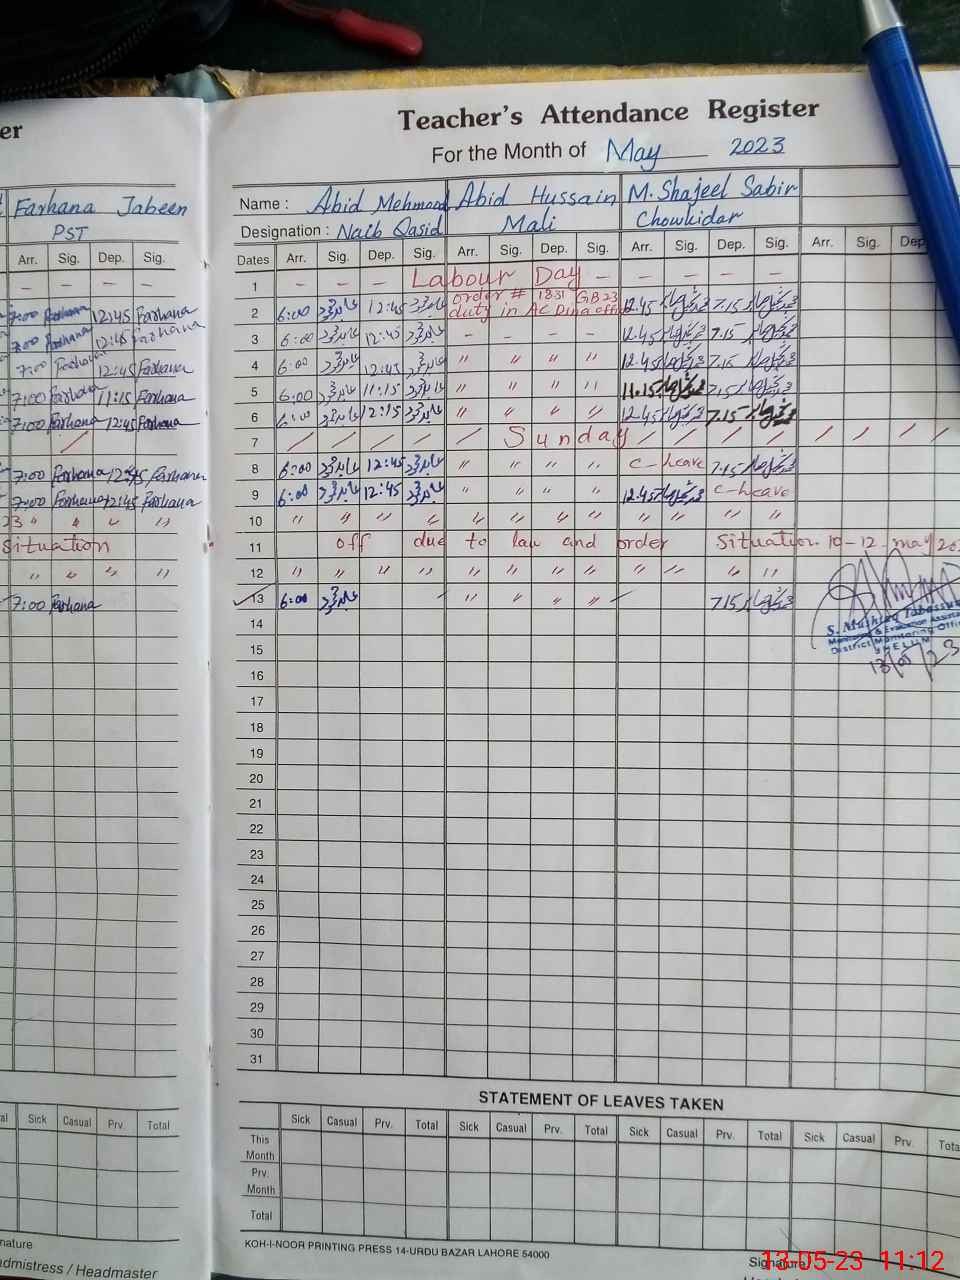 er
Teacher's Attendance Register
For the Month of May 2023
Farhana Jabeen
PST
Name : Abid Mehmood Abid Hussain M. Shajeel Sabir
Designation : Naib Qasid Mali Chowkidar
Arr. Sig. Dep. Sig.
Dates Arr. Sig. Dep. Sig. Arr. Sig. Dep. Sig. Arr. Sig. Dep. Sig. Arr. Sig. Dep
1 – – – Labour Day – – – – –
7:00 Farhana 12:45 Farhana
2 6:00 12:45 order # 1831 GB 23 12.45 7.15
duty in AC Dina office
7:00 Farhana 12:45 Farhana
3 6:00 12:45 – – – – 12.45 7.15
7:00 Farhana 12:45 Farhana
4 6:00 12:45 " " " " 12.45 7.15
7:00 Farhana 11:15 Farhana
5 6:00 11:15 " " " " 11.15 7.15
7:00 Farhana 12:45 Farhana
6 6:00 12:15 " " " " 12.45 7.15
7 / / / / / Sunday / / / / / / /
7:00 Farhana 12:45 Farhana
8 6:00 12:45 " " " " c-leave 7.15
7:00 Farhana 12:45 Farhana
9 6:00 12:45 " " " " 12.45 c-leave
23 " " " "
10 " " " " " " " " " " " "
Situation
11 off due to law and order Situation 10-12 may 20
" " " "
12 " " " " " " " " " " " "
7:00 Farhana
13 6:00 " " " " 7.15
S. Mushtaq Tabassum
Monitoring & Evaluation Assistant
District Monitoring Office
JHELUM
13/05/23
14
15
16
17
18
19
20
21
22
23
24
25
26
27
28
29
30
31
STATEMENT OF LEAVES TAKEN
al Sick Casual Prv. Total
Sick Casual Prv. Total Sick Casual Prv. Total Sick Casual Prv. Total Sick Casual Prv. Tota
This
Month
Prv.
Month
Total
KOH-I-NOOR PRINTING PRESS 14-URDU BAZAR LAHORE 54000
nature
admistress / Headmaster
Signature
13-05-23 11:12